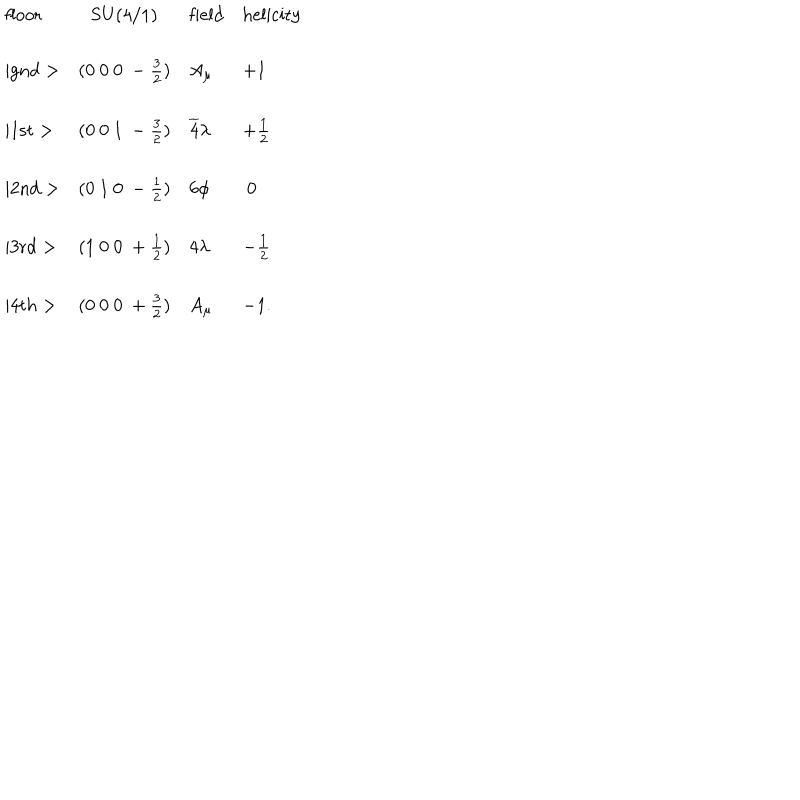 floor SU(4/1) field helicity
|gnd > (0 0 0 − 3/2) A_μ +1
|1st > (0 0 1 − 3/2) 4̅λ +1/2
|2nd > (0 1 0 − 1/2) 6ϕ 0
|3rd > (1 0 0 + 1/2) 4λ −1/2
|4th > (0 0 0 + 3/2) A_μ −1.